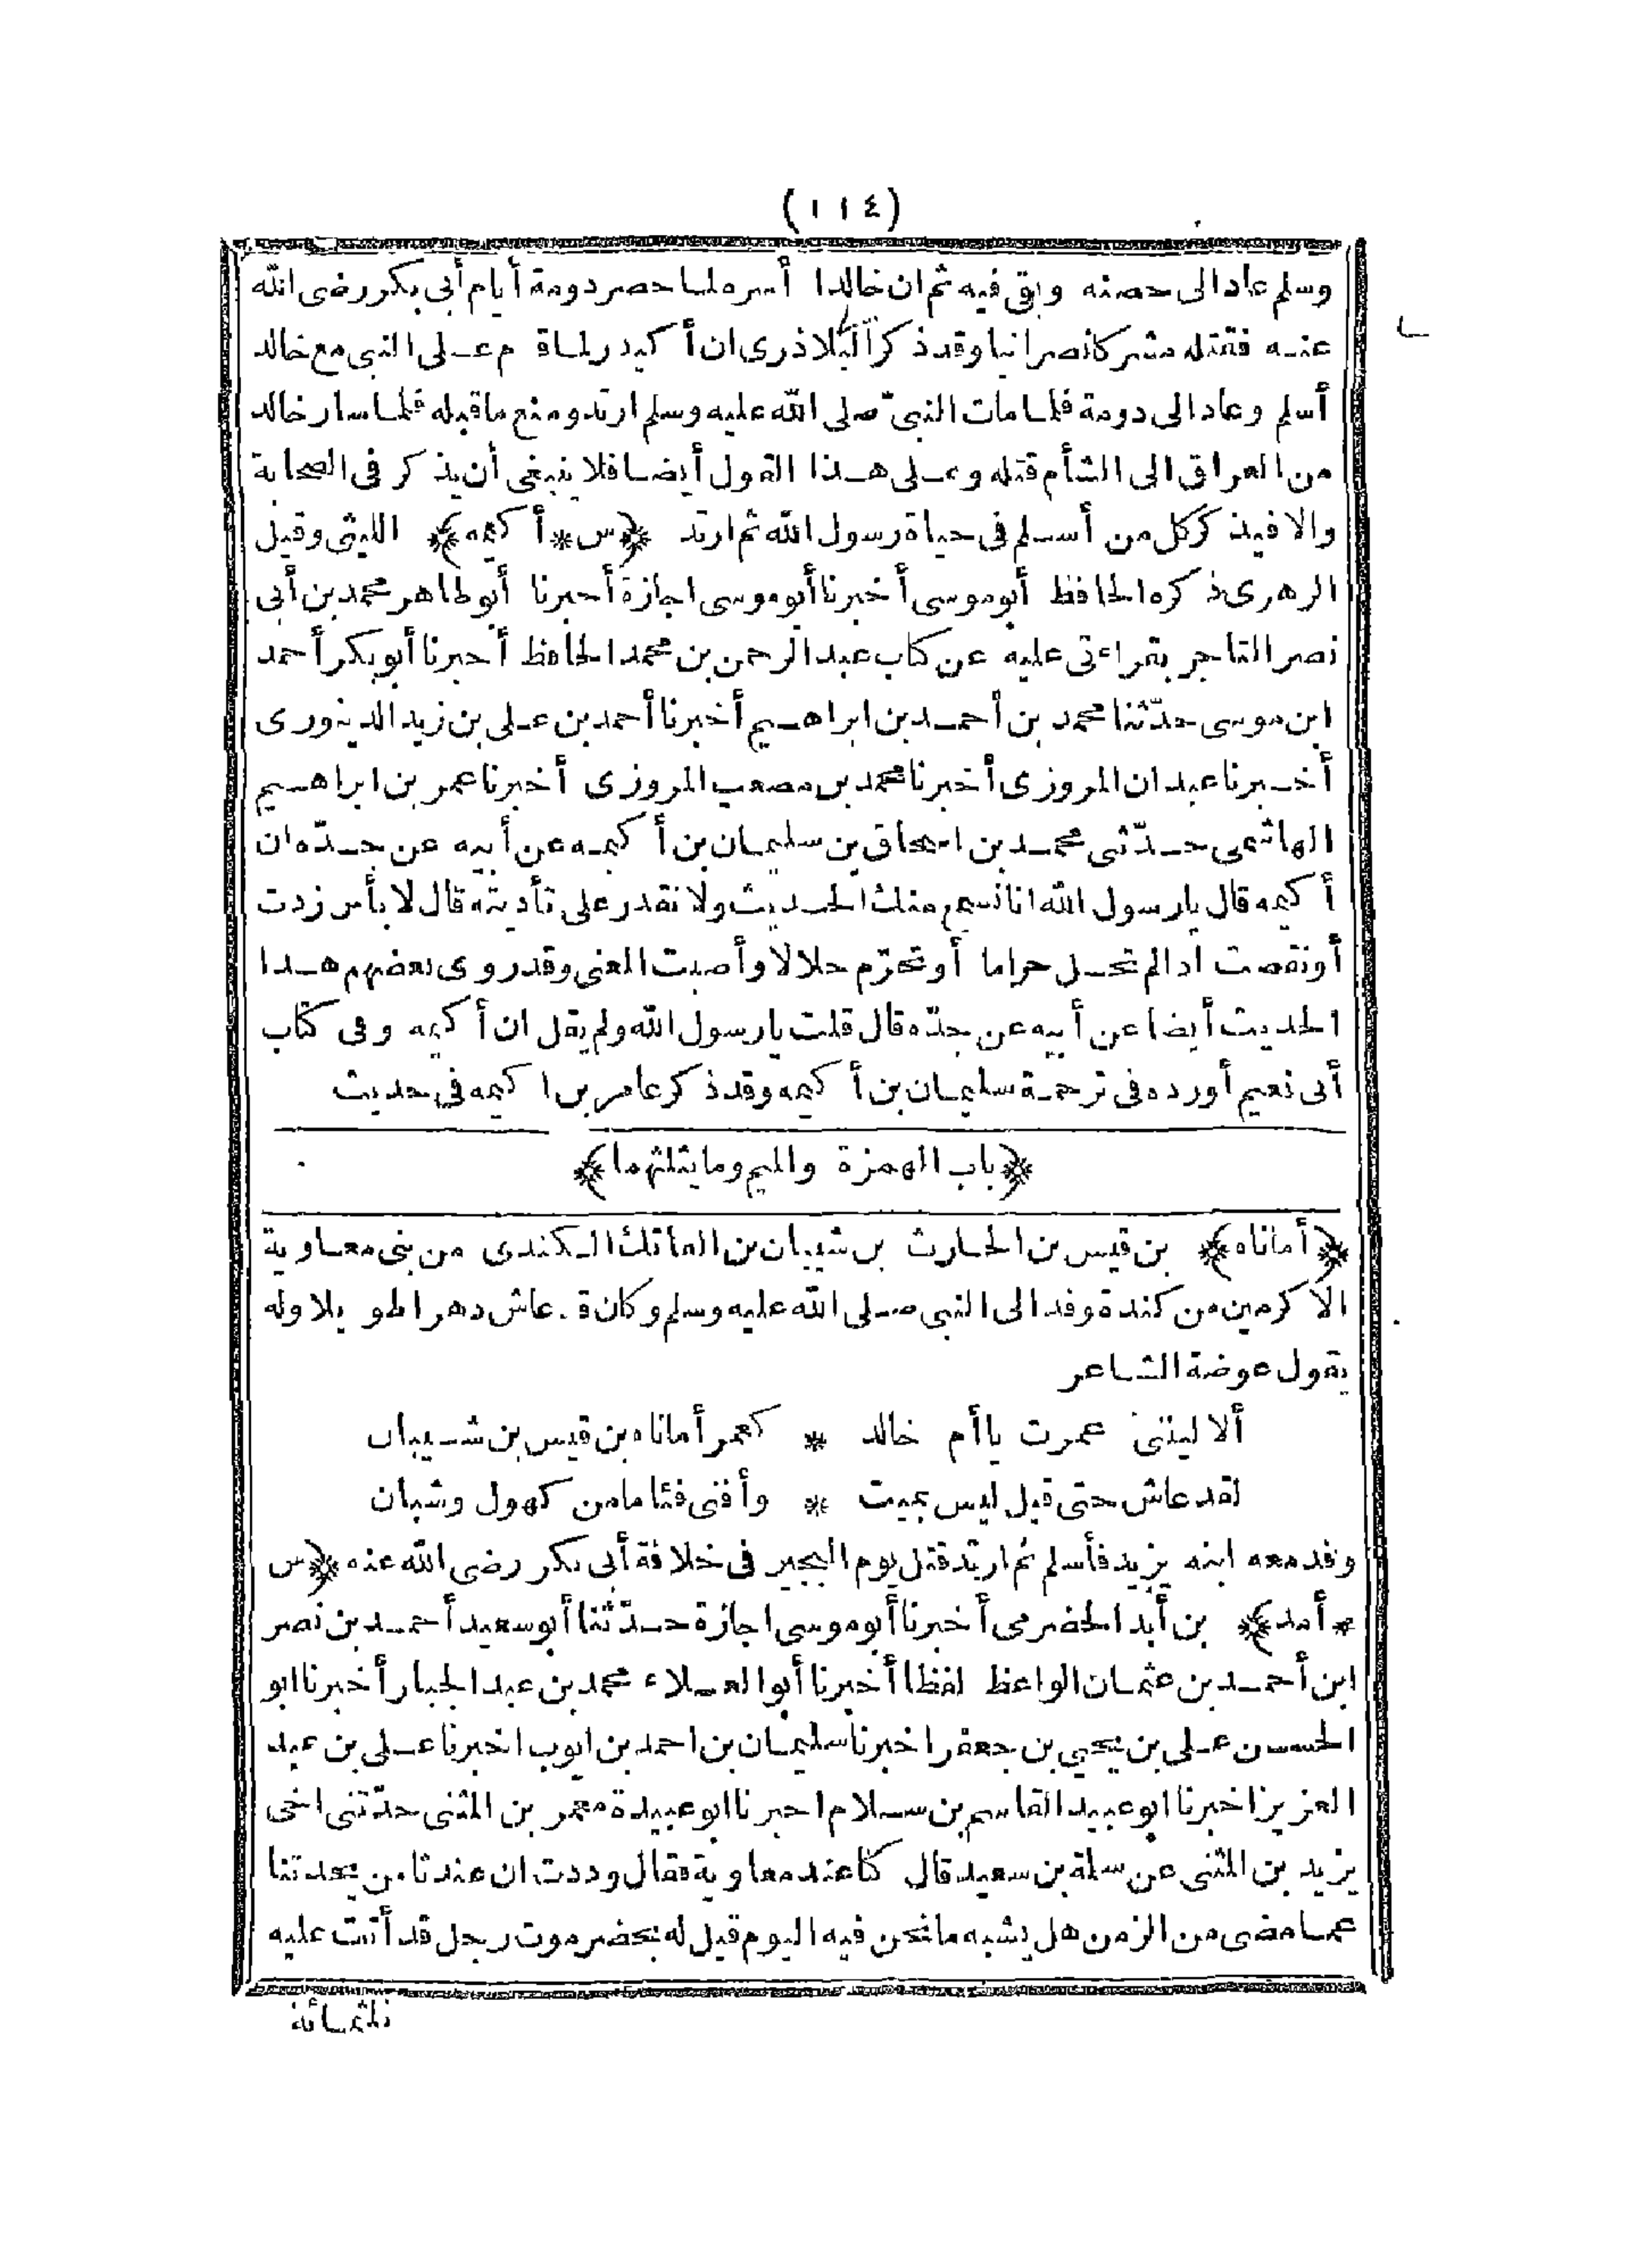 (١١٤)
وسلم عاد الى حصنه وبقى فيه ثم ان خالدا أسره لما حصر دومة أيام أبى بكر رضى الله
عنه فقتله مشركا نصرانيا وقد ذكر البلاذرى ان أكيدر لما قدم على النبى مع خالد
أسلم وعاد الى دومة فلما مات النبىّ صلى الله عليه وسلم ارتد ومنع ما قبله فلما سار خالد
من العراق الى الشأم قتله وعلى هذا القول أيضا فلا ينبغى أن يذكر فى الصحابة
والا فيذكر كل من أسلم فى حياة رسول الله ثم ارتد ﴿س * أكيمه﴾ الليثى وقيل
الزهرى ذكره الحافظ أبو موسى أخبرنا أبو موسى اجازة أخبرنا أبو طاهر محمد بن أبى
نصر التاجر بقراءتى عليه عن كتاب عبد الرحمن بن محمد الحافظ أخبرنا أبو بكر أحمد
ابن موسى حدّثنا محمد بن أحمد بن ابراهيم أخبرنا أحمد بن على بن زيد الدينورى
أخبرنا عبدان المروزى أخبرنا محمد بن مصعب المروزى أخبرنا عمر بن ابراهيم
الهاشمى حدّثنى محمد بن اسحاق بن سليمان بن أكيمه عن أبيه عن جدّه ان
أكيمه قال يا رسول الله انا نسمع منك الحديث ولا نقدر على تأديته قال لا بأس زدت
أو نقصت اذا لم تحل حراما أو تحرّم حلالا وأصبت المعنى وقد روى بعضهم هذا
الحديث أيضا عن أبيه عن جدّه قال قلت يا رسول الله ولم يقل ان أكيمه وفى كتاب
أبى نعيم أورده فى ترجمة سليمان بن أكيمه وقد ذكر عامر بن اكيمه فى حديث
﴿باب الهمزة والميم وما يثلثهما﴾
﴿أماناه﴾ بن قيس بن الحارث بن شيبان بن العاتك الكندى من بنى معاوية
الاكرمين من كندة وفد الى النبى صلى الله عليه وسلم وكان قد عاش دهرا طويلا وله
يقول عوضة الشاعر
ألا ليتنى عمرت يا أم خالد * كعمر أماناه بن قيس بن شيبان
لقد عاش حتى قيل ليس بميت * وأفنى فئاما من كهول وشبان
وفد معه ابنه يزيد فأسلم ثم ارتد قتل يوم النجير فى خلافة أبى بكر رضى الله عنه ﴿س
* أمد﴾ بن أبد الحضرمى أخبرنا أبو موسى اجازة حدّثنا أبو سعيد أحمد بن نصر
ابن أحمد بن عثمان الواعظ لفظا أخبرنا أبو العلاء محمد بن عبد الجبار أخبرنا ابو
الحسن على بن يحيى بن جعفر اخبرنا سليمان بن احمد بن ايوب اخبرنا على بن عبد
العزيز اخبرنا ابو عبيد القاسم بن سلام اخبرنا ابو عبيدة معمر بن المثنى حدّثنى اخى
يزيد بن المثنى عن سلمة بن سعيد قال كنا عند معاوية فقال وددت ان عندنا من يحدثنا
عما مضى من الزمن هل يشبه ما نحن فيه اليوم قيل له بحضرموت رجل قد أتت عليه
ثلثمائة